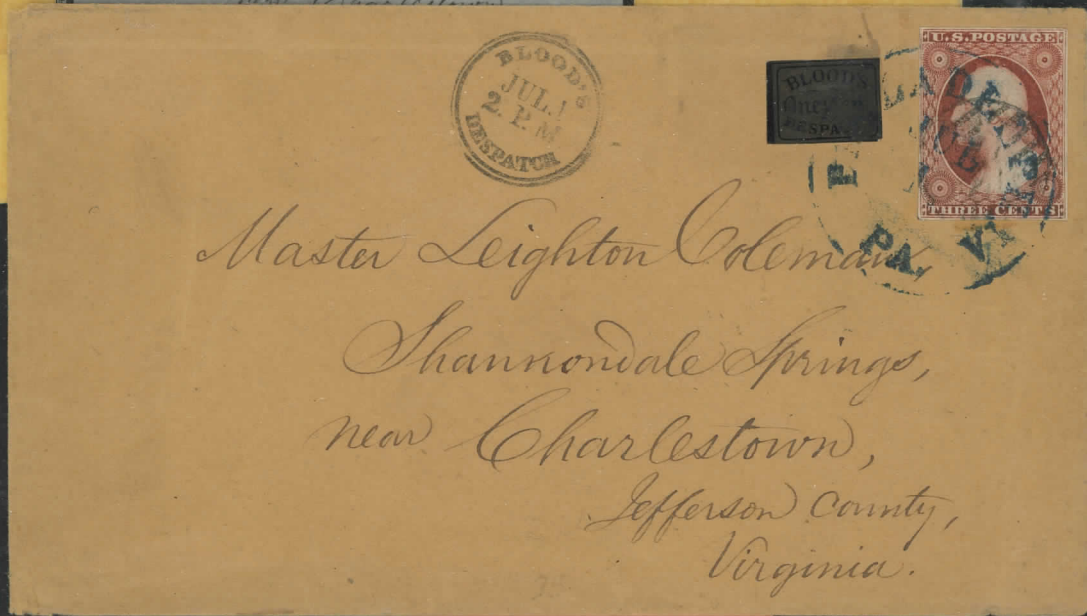 BLOOD'S
JUL. 1
2 P.M
DESPATCH
BLOOD'S
DESPA
U.S. POSTAGE
THREE CENTS
PA.
Master Leighton Coleman,
Shannondale Springs,
near Charlestown,
Jefferson County,
Virginia.